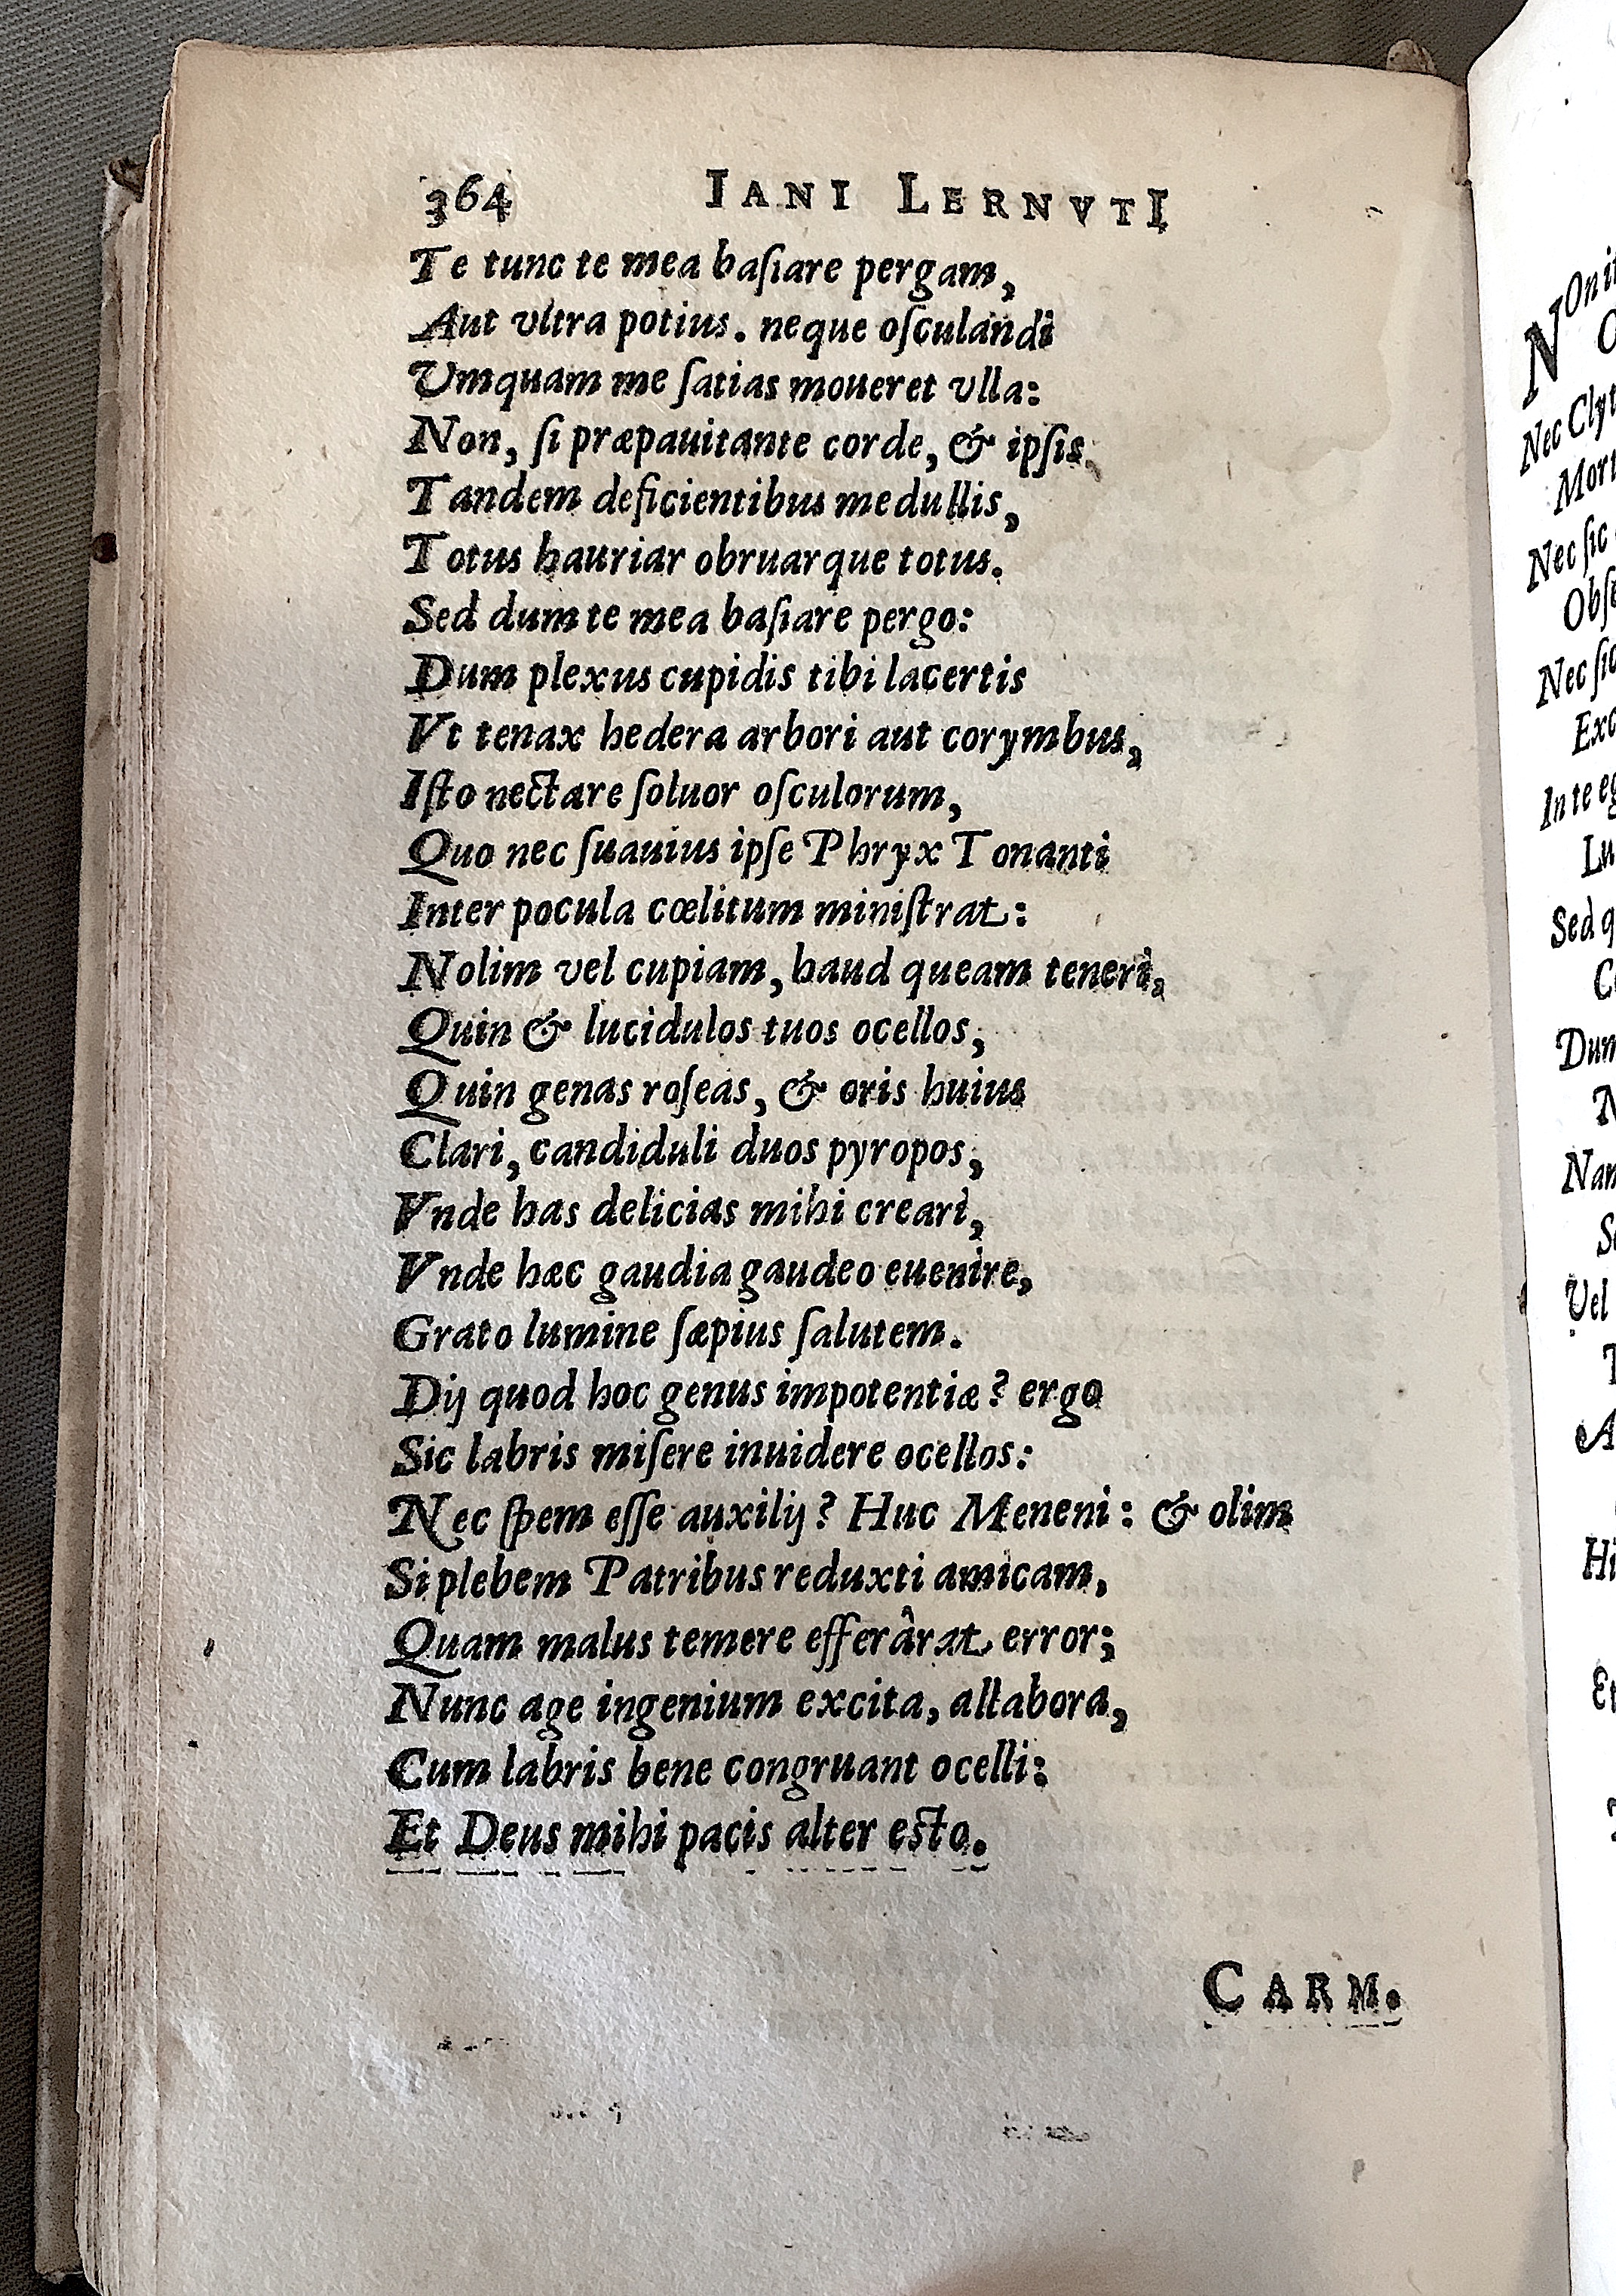 364 IANI LERNVTI
Te tunc te mea baſiare pergam,
Aut vltra potius. neque oſculandi
Vmquam me ſatias moueret vlla:
Non, ſi præpauitante corde, & ipſis,
Tandem deficientibus medullis,
Totus hauriar obruarque totus.
Sed dum te mea baſiare pergo:
Dum plexus cupidis tibi lacertis
Vt tenax hedera arbori aut corymbus,
Iſto nectare ſoluor oſculorum,
Quo nec ſuauius ipſe Phryx Tonanti
Inter pocula cœlitum miniſtrat:
Nolim vel cupiam, haud queam teneri,
Quin & lucidulos tuos ocellos,
Quin genas roſeas, & oris huius
Clari, candiduli duos pyropos,
Vnde has delicias mihi creari,
Vnde hæc gaudia gaudeo euenire,
Grato lumine ſæpius ſalutem.
Dij quod hoc genus impotentiæ? ergo
Sic labris miſere inuidere ocellos:
Nec ſpem eſſe auxilij? Huc Meneni: & olim
Si plebem Patribus reduxti amicam,
Quam malus temere efferârat error;
Nunc age ingenium excita, allabora,
Cum labris bene congruant ocelli:
Et Deus mihi pacis alter eſto.
CARM.
NOn it
Nec Clyt
Mort
Nec ſic
Obſe
Nec ſic
Exc
In te eg
Lu
Sed q
Dum
Nam
Vel
Hi
Et